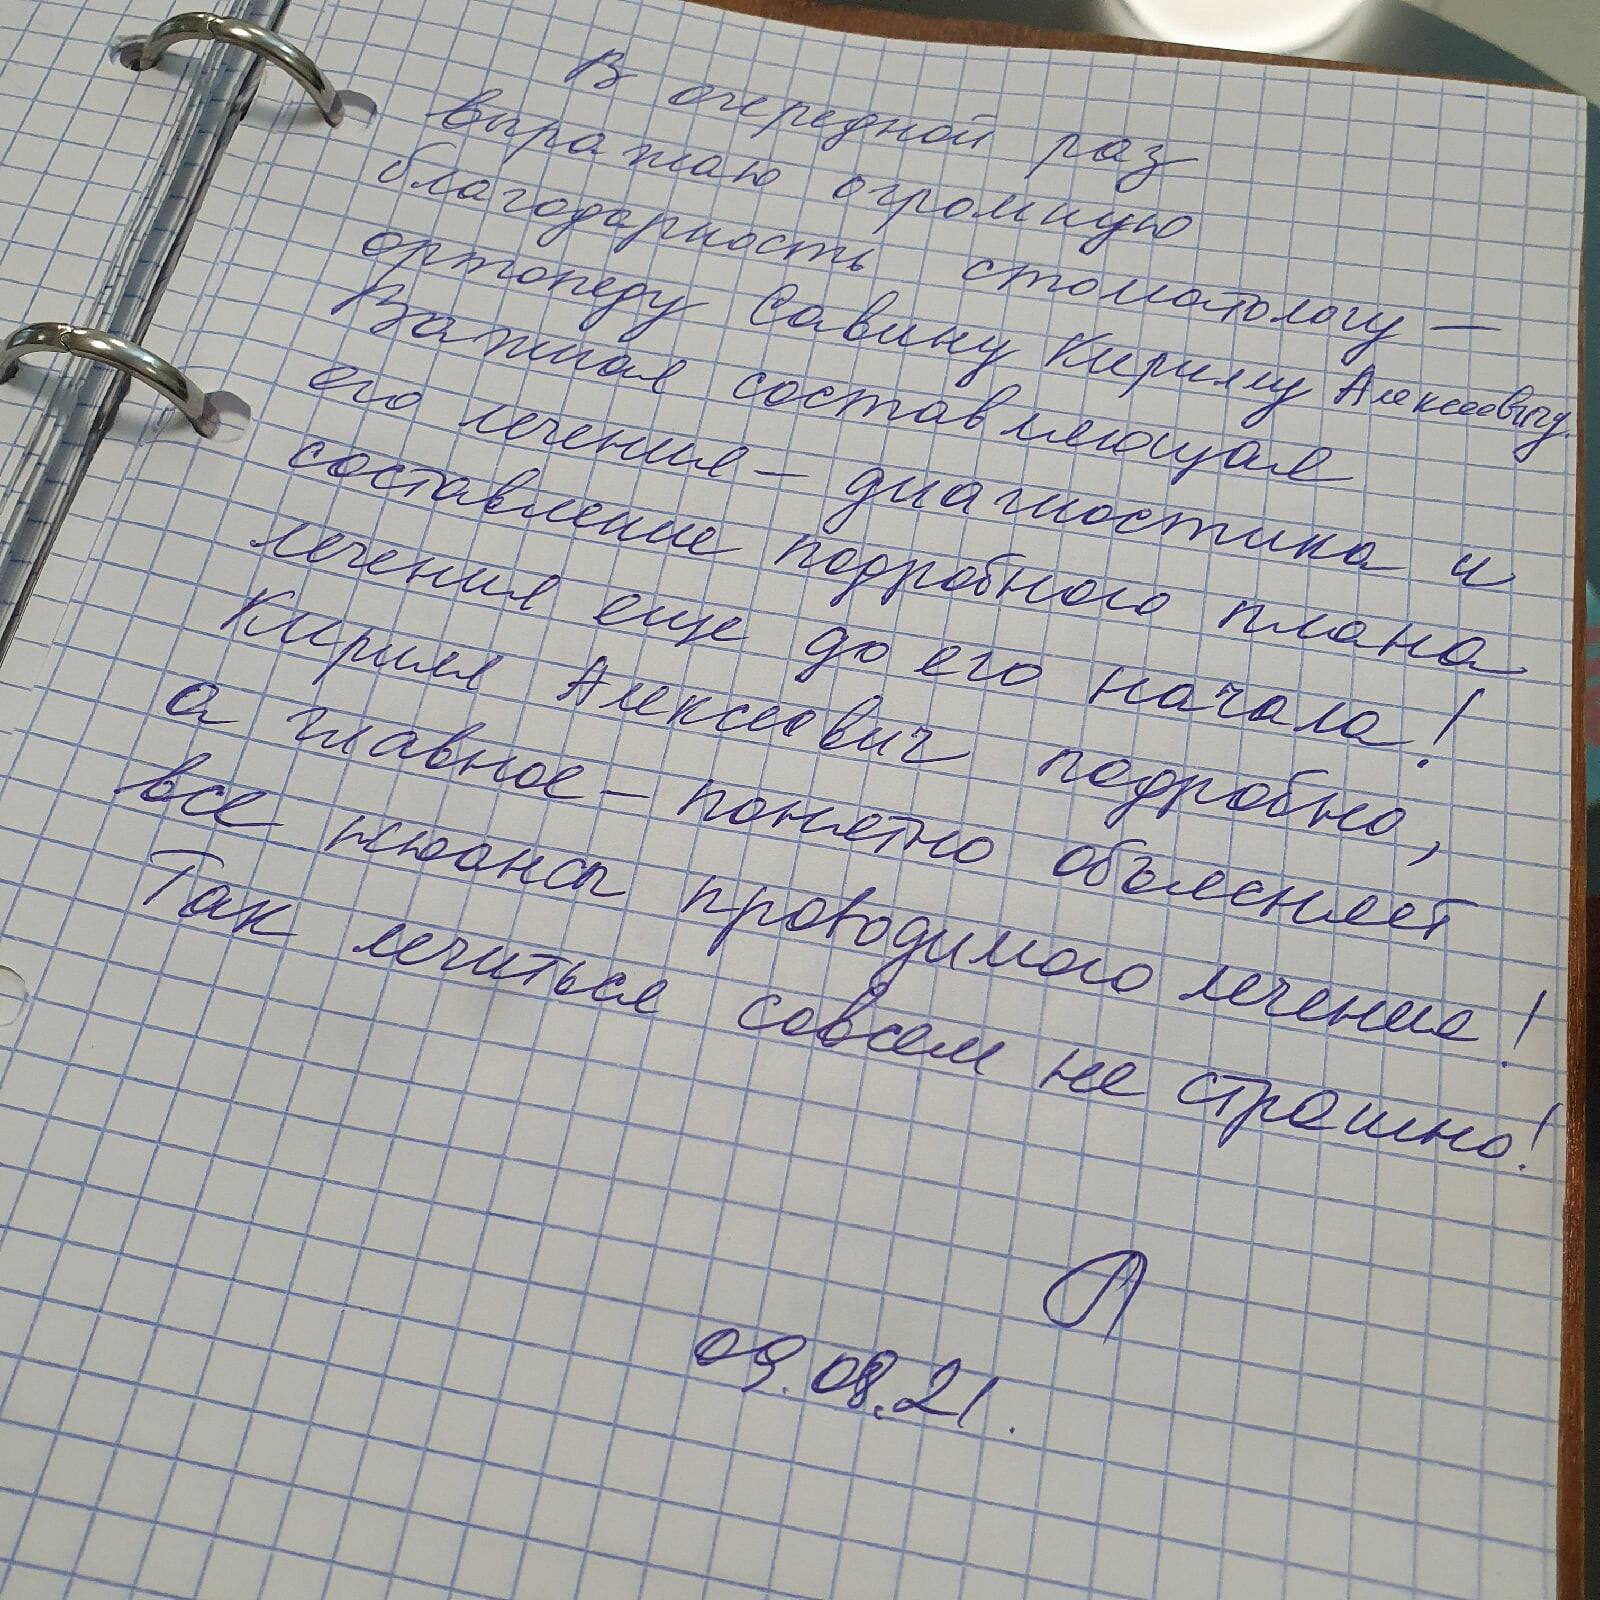 В очередной раз
выражаю огромную
благодарность стоматологу —
ортопеду Савину Кириллу Алексеевичу.
Важная составляющая
его лечения — диагностика и
составление подробного плана
лечения еще до его начала!
Кирилл Алексеевич подробно,
а главное — понятно объясняет
все нюансы проводимого лечения!
Так лечиться совсем не страшно!
09.08.21.